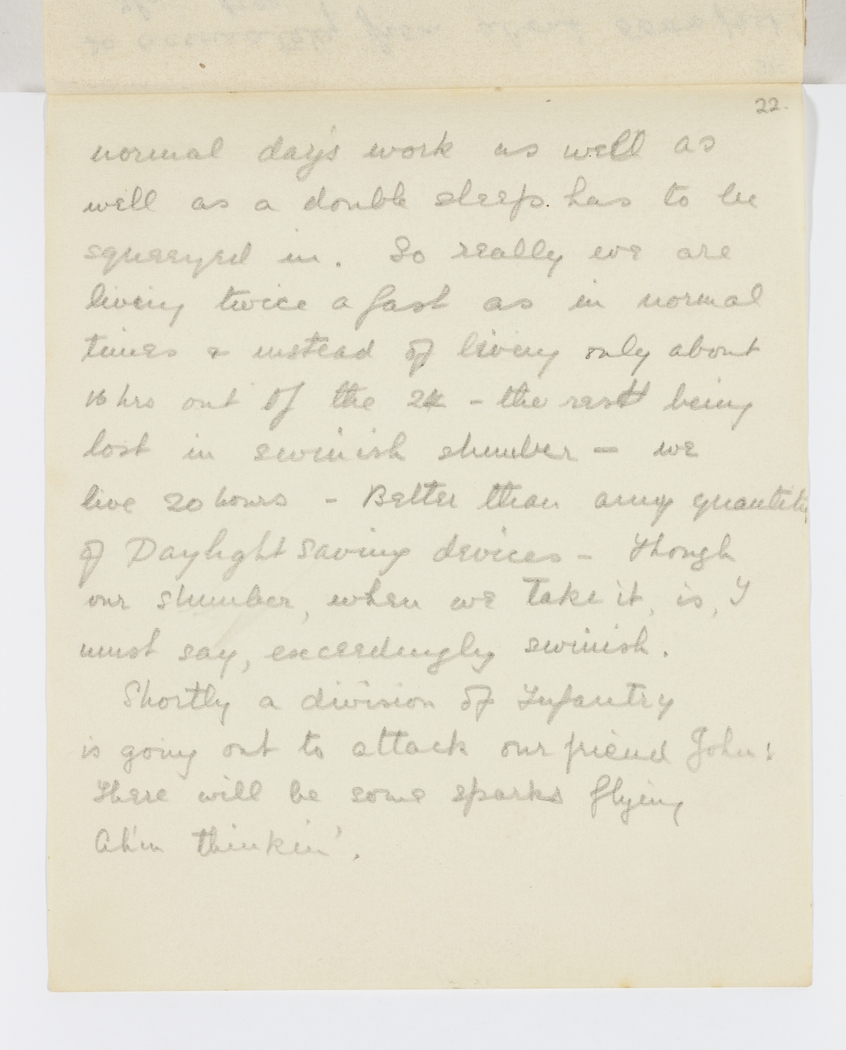 22.
normal day's work as well as
well as a double sleep. has to be
squeezed in. So really we are
living twice a fast as in normal
times & instead of living only about
16 hrs out of the 24 - the rest being
lost in swinish slumber - we
live 20 hours - Better than any quantity
of Daylight Saving devices - Though
our slumber, when we take it, is, I
must say, exceedingly swinish.
Shortly a division of Infantry
is going out to attack our friend John:
There will be some sparks flying
Ah'm thinkin'.